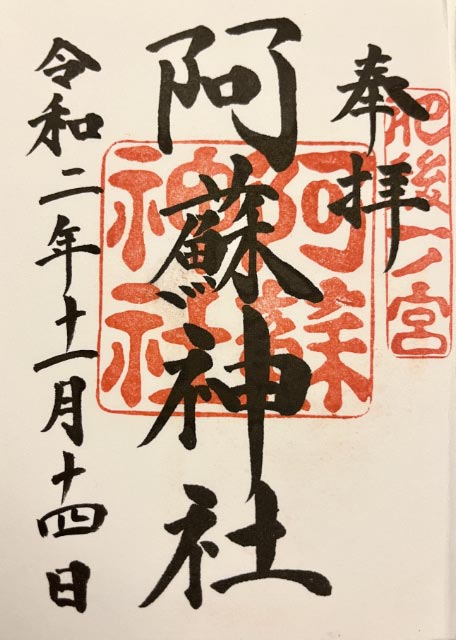 奉拝
肥後一ノ宮
阿蘇神社
阿蘇神社
令和二年十一月十四日